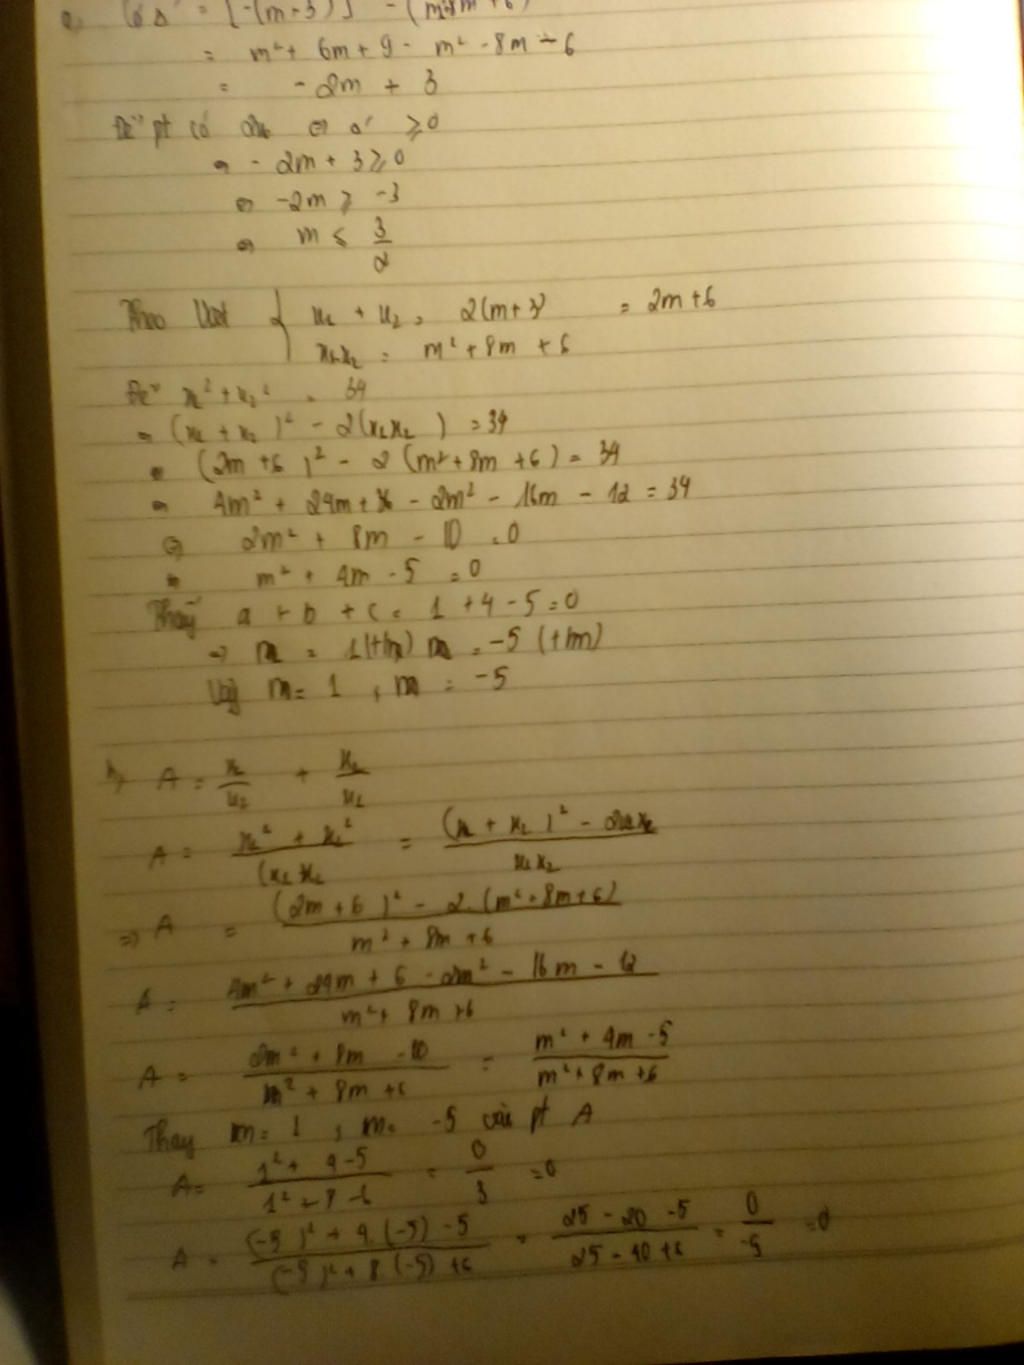 a, Có Δ' = [-(m+3)]² - (m²+8m+6)
= m² + 6m + 9 - m² - 8m - 6
= -2m + 3
Để pt có ⇔ Δ' ≥ 0
⇔ -2m + 3 ≥ 0
⇔ -2m ≥ -3
⇔ m ≤ 3/2
Theo Viet { x₁ + x₂ = 2(m+3) = 2m+6
x₁x₂ = m² + 8m + 6
Để x₁² + x₂² = 34
⇔ (x₁ + x₂)² - 2(x₁x₂) = 34
⇔ (2m+6)² - 2(m²+8m+6) = 34
⇔ 4m² + 24m + 36 - 2m² - 16m - 12 = 34
⇔ 2m² + 8m - 10 = 0
⇔ m² + 4m - 5 = 0
Thấy a + b + c = 1 + 4 - 5 = 0
⇒ m = 1 (t/m) m = -5 (t/m)
Vậy m = 1, m = -5
b, A = x₁/x₂ + x₂/x₁
A = (x₁² + x₂²)/(x₁x₂ = ((x₁ + x₂)² - 2x₁x₂)/(x₁x₂)
⇒ A = ((2m+6)² - 2.(m²+8m+6))/(m² + 8m + 6)
A = (4m² + 24m + 6 - 2m² - 16m - 12)/(m² + 8m + 6)
A = (2m² + 8m - 10)/(m² + 8m + 6) = (m² + 4m - 5)/(m² + 8m + 6)
Thay m = 1, m = -5 vào pt A
A = (1² + 4 - 5)/(1² + 8 - 6) = 0/3 = 0
A = ((-5)² + 4.(-5) - 5)/((-5)² + 8.(-5) + 6) = (25 - 20 - 5)/(25 - 40 + 6) = 0/-5 = 0